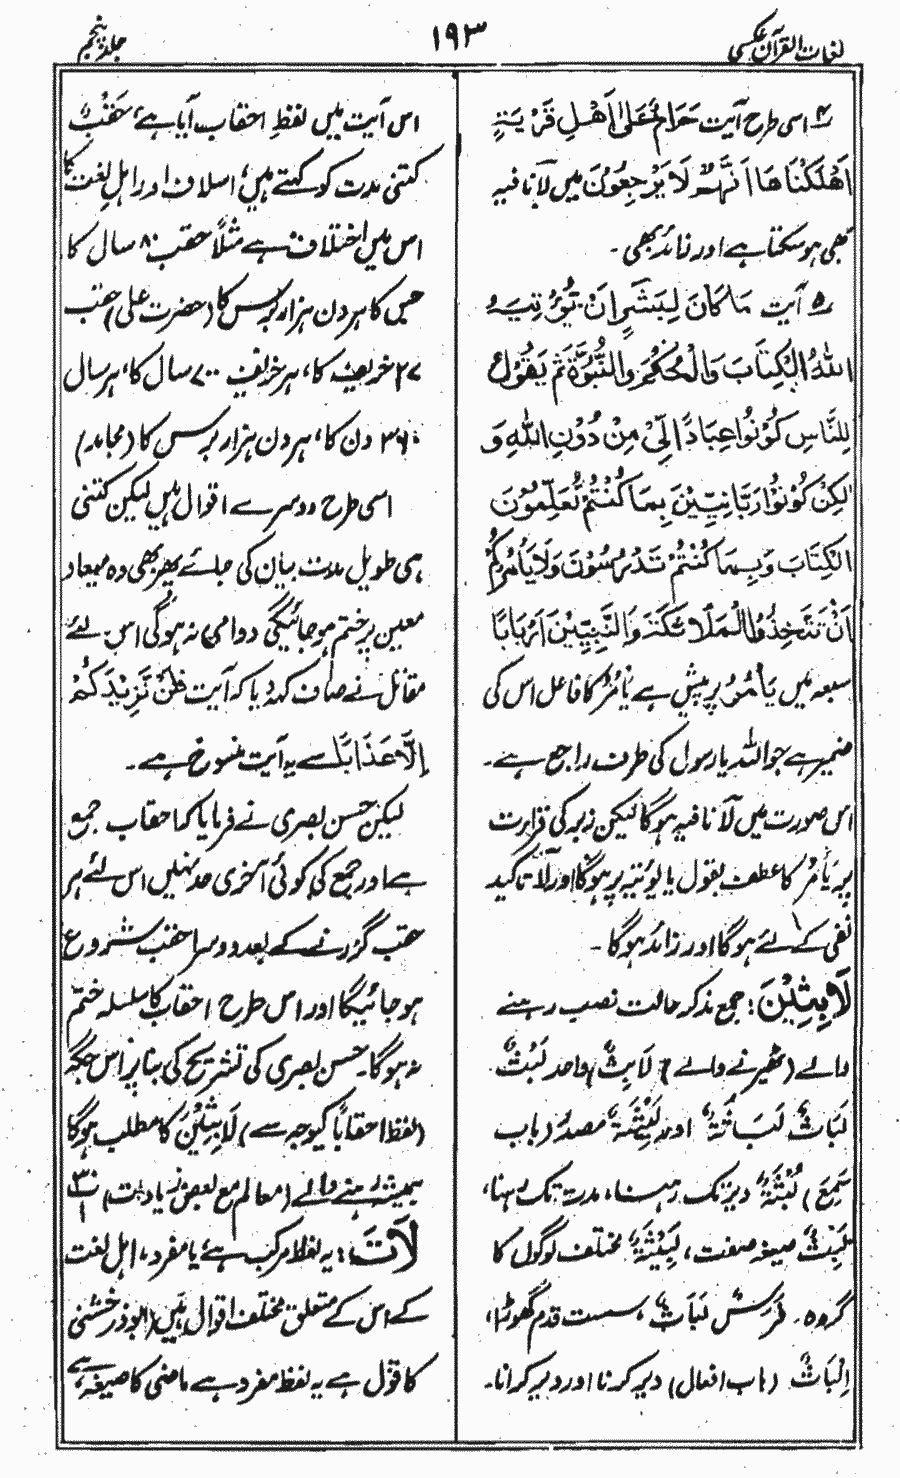 لغات القرآن عکسی
۱۹۳
جلد پنجم
۴ اسی طرح آیت حَرَامٌ عَلٰى اَهْلِ قَرْيَةٍ
اَهْلَكْنَاهَا اَنَّهُمْ لَا يَرْجِعُوْنَ میں لَا نافیہ
بھی ہوسکتا ہے اور زائد بھی۔
۵ آیت مَا كَانَ لِبَشَرٍ اَنْ يُّؤْتِيَهُ
اللّٰهُ الْكِتَابَ وَالْحُكْمَ وَالنُّبُوَّةَ ثُمَّ يَقُوْلُ
لِلنَّاسِ كُوْنُوْا عِبَادًا لِّيْ مِنْ دُوْنِ اللّٰهِ وَ
لٰكِنْ كُوْنُوْا رَبَّانِيّٖنَ بِمَا كُنْتُمْ تُعَلِّمُوْنَ
الْكِتَابَ وَبِمَا كُنْتُمْ تَدْرُسُوْنَ وَلَا يَاْمُرَكُمْ
اَنْ تَتَّخِذُوا الْمَلَائِكَةَ وَالنَّبِيِّيْنَ اَرْبَابًا
سبعہ میں يَاْمُرُ پر پیش ہے يَاْمُرُ کا فاعل اس کی
ضمیر ہے جو اللہ یا رسول کی طرف راجع ہے۔
اس صورت میں لَا نافیہ ہوگا لیکن زبر کی قراءت
پر يَاْمُرَ کا عطف یقول یا یوتیہ پر ہوگا اور لَا تاکید
نفی کے لئے ہوگا اور زائد ہوگا۔
لَابِثِيْنَ: جمع مذکر حالت نصب رہنے
والے (ٹھیرنے والے) لَابِثٌ واحد لَبْثٌ
لَبَاثٌ لَبَاثَةٌ اور لَبِيْثَةٌ مصدر (باب
سَمِعَ) لُبْثَةٌ دیر تک رہنا، مدت تک رہنا،
لَبِثٌ صیغہ صفت، لَبِيْثَةٌ مختلف لوگوں کا
گروہ۔ فَرَسٌ لَبَاثٌ، سست قدم گھوڑا،
اِلْبَاثٌ (باب افعال) دیر کرنا اور دیر کرانا۔
اس آیت میں لفظ احقاب آیا ہے، حَقْبٌ
کتنی مدت کو کہتے ہیں، اسلاف اور اہل لغت کا
اس میں اختلاف ہے مثلاً حقب ۸۰ سال کا
جس کا ہر دن ہزار برس کا (حضرت علی) حقب
۲۷ خریف کا، ہر خریف ۷۰۰ سال کا، ہر سال
۳۶۰ دن کا، ہر دن ہزار برس کا (مجاہد)
اسی طرح دوسرے اقوال ہیں لیکن کتنی
ہی طویل مدت بیان کی جائے پھر بھی وہ میعاد
معین پر ختم ہو جائیگی دوامی نہ ہوگی اس لئے
مقاتل نے صاف کہدیا کہ آیت فَلَنْ نَزِيْدَكُمْ
اِلَّا عَذَابًا سے یہ آیت منسوخ ہے۔
لیکن حسن بصری نے فرمایا کہ احقاب جمع
ہے اور جمع کی کوئی آخری حد نہیں اس لئے ہر
حقب گزرنے کے بعد دوسرا حقب شروع
ہو جائیگا اور اس طرح احقاب کا سلسلہ ختم
نہ ہوگا۔ حسن بصری کی تشریح کی بنا پر اس جگہ
(لفظ احقابًا کیوجہ سے) لَابِثِيْنَ کا مطلب ہوگا
ہمیشہ رہنے والے (معالم مع بعض زیادت) ۳۰/۱
لَاتَ: یہ لفظ مرکب ہے یا مفرد، اہل لغت
کے اس کے متعلق مختلف اقوال ہیں (ابوذر خشنی
کا قول ہے یہ لفظ مفرد ہے ماضی کا صیغہ ہے،